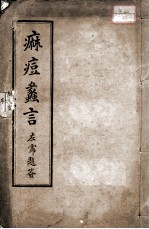 痲痘蠡言
左霈題簽